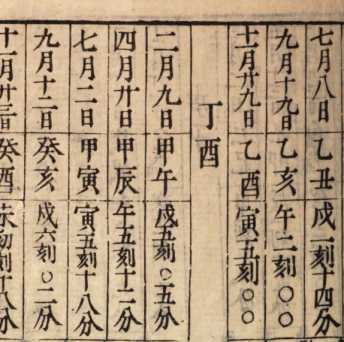 七月八日乙丑戌一刻十四分
九月十九日乙亥午二刻〇〇
十一月廿九日乙酉寅五刻〇〇
丁酉
二月九日甲午戌五刻〇五分
四月廿日甲辰午五刻十二分
七月二日甲寅寅五刻十八分
九月十二日癸亥戌六刻〇二分
十一月廿三日癸酉未初刻十八分